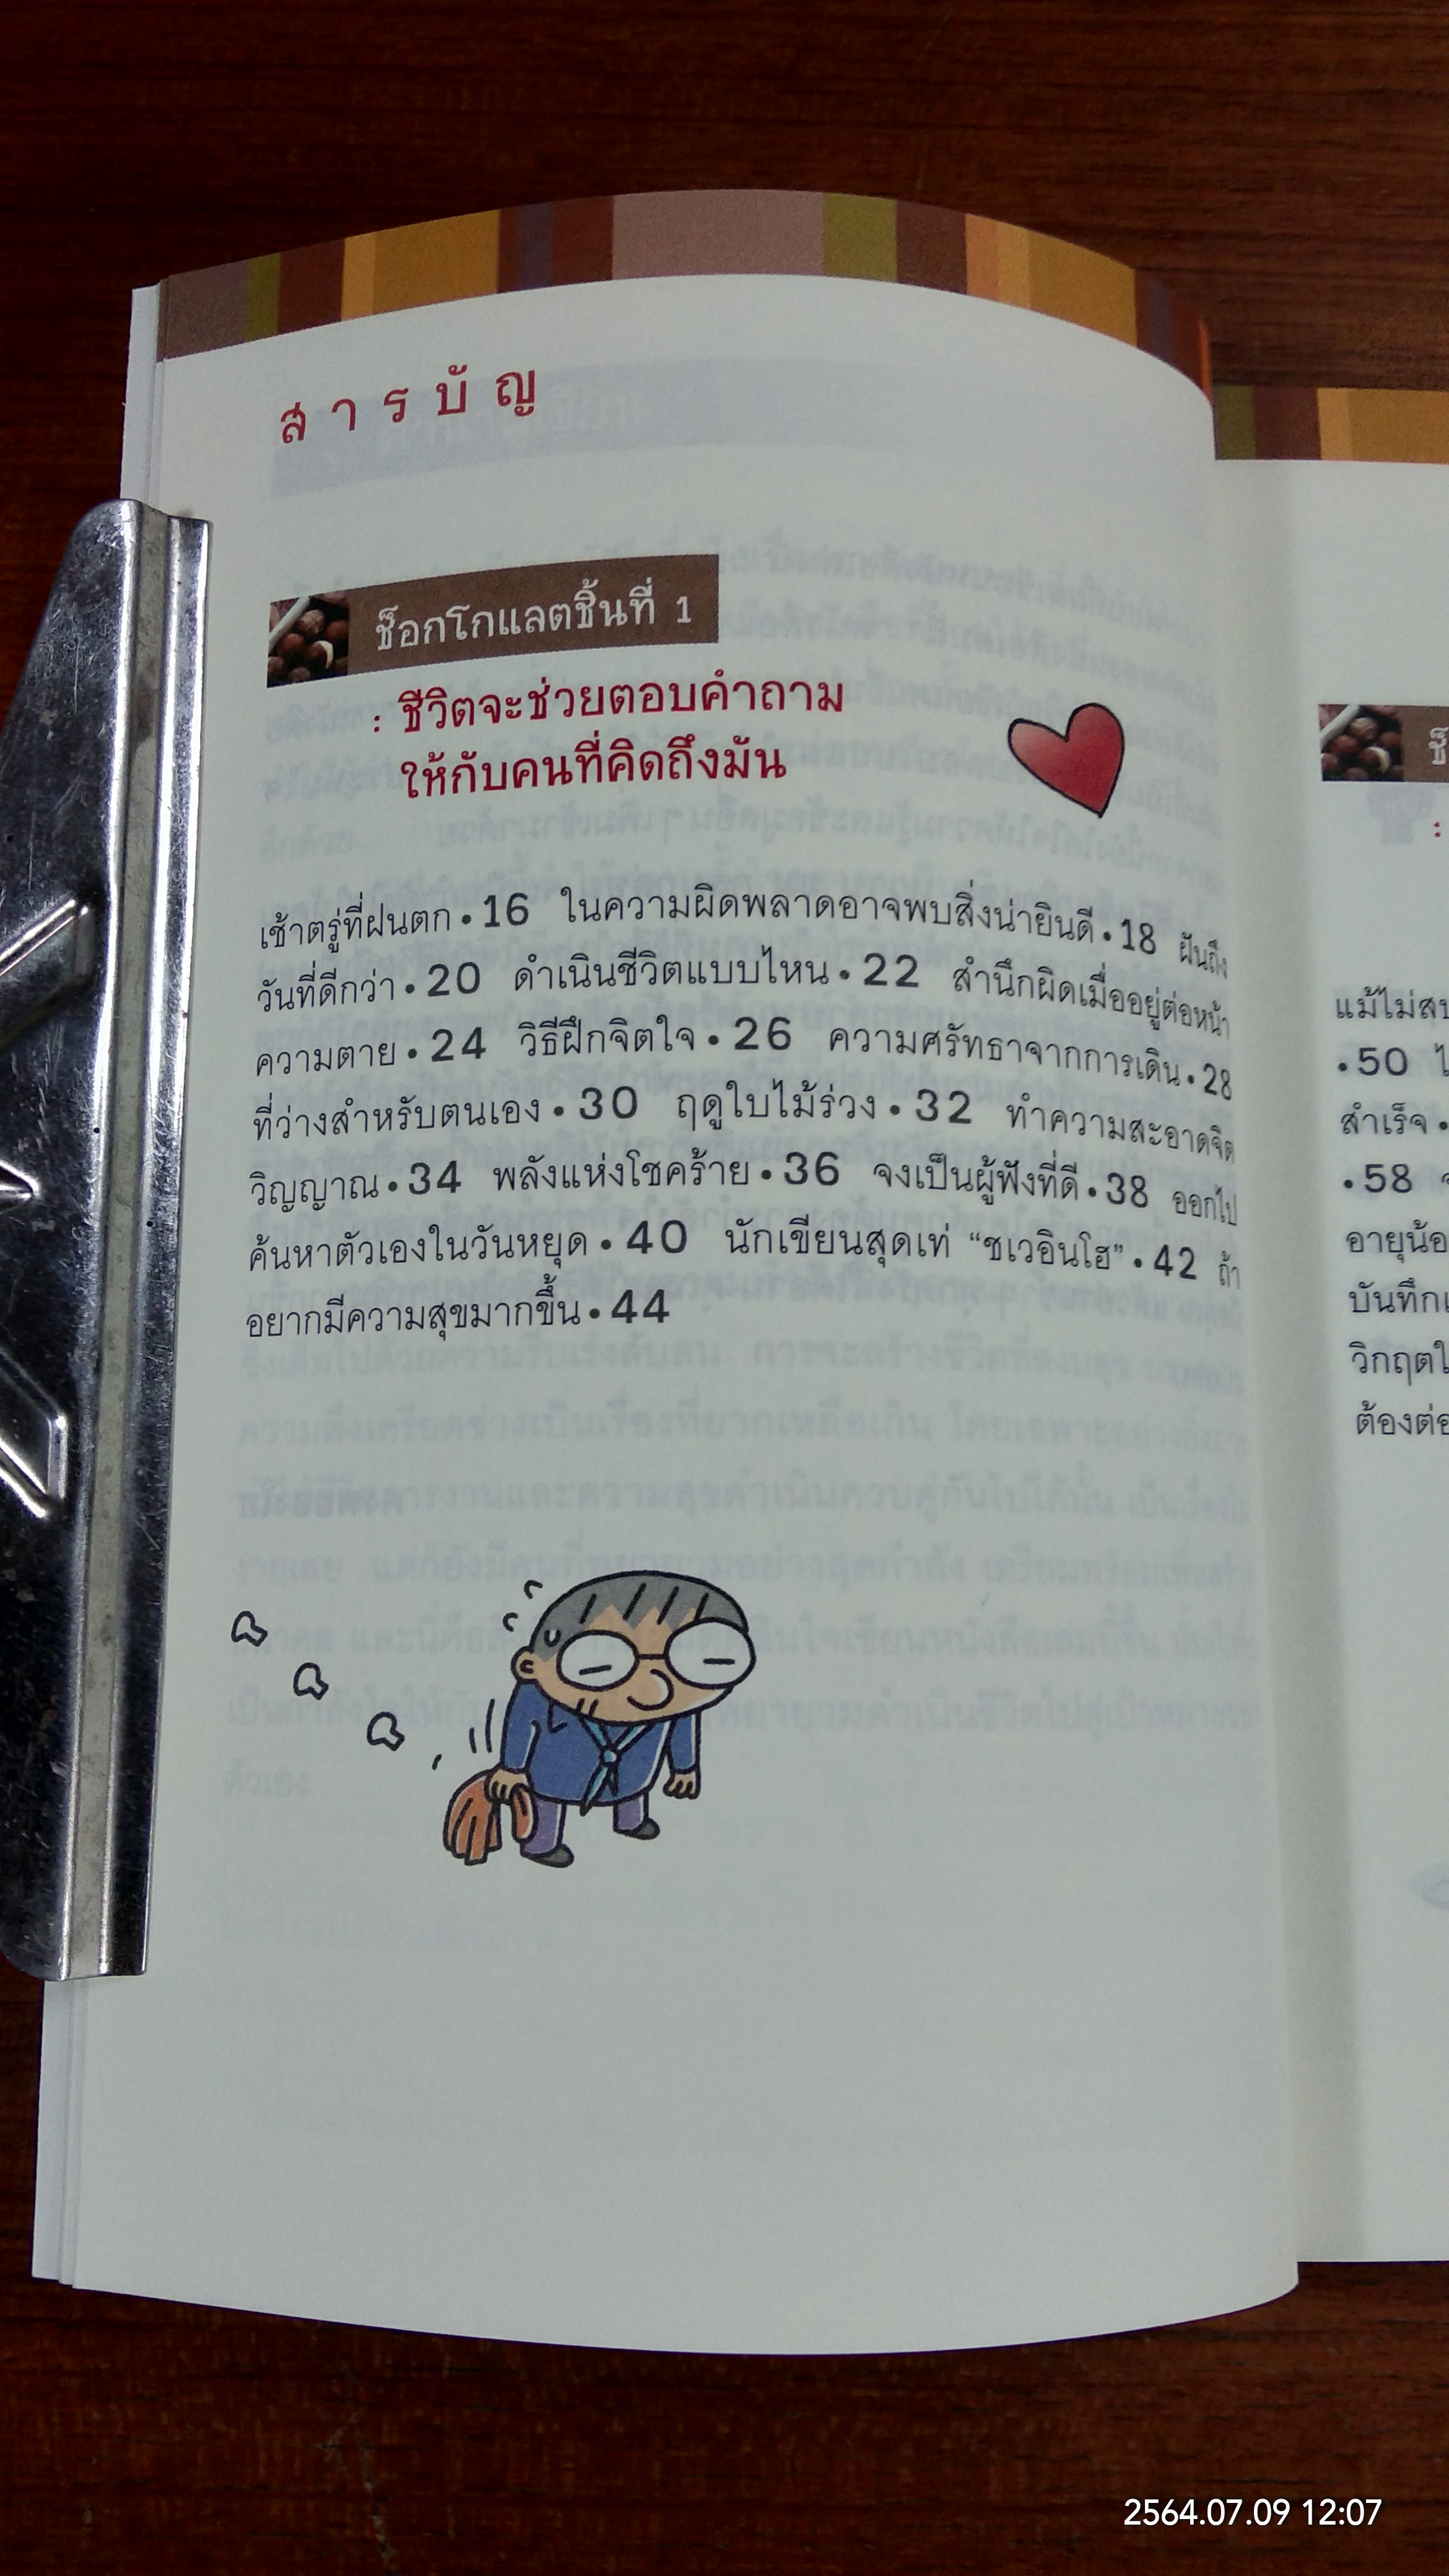 สารบัญ
ช็อกโกแลตชิ้นที่ 1
: ชีวิตจะช่วยตอบคำถาม
ให้กับคนที่คิดถึงมัน
เช้าตรู่ที่ฝนตก • 16 ในความผิดพลาดอาจพบสิ่งน่ายินดี • 18 ฝันถึง
วันที่ดีกว่า • 20 ดำเนินชีวิตแบบไหน • 22 สำนึกผิดเมื่ออยู่ต่อหน้า
ความตาย • 24 วิธีฝึกจิตใจ • 26 ความศรัทธาจากการเดิน • 28
ที่ว่างสำหรับตนเอง • 30 ฤดูใบไม้ร่วง • 32 ทำความสะอาดจิต
วิญญาณ • 34 พลังแห่งโชคร้าย • 36 จงเป็นผู้ฟังที่ดี • 38 ออกไป
ค้นหาตัวเองในวันหยุด • 40 นักเขียนสุดเท่ “ชเวอินโฮ” • 42 ถ้า
อยากมีความสุขมากขึ้น • 44
:
แม้ไม่
• 50
สำเร็จ •
• 58
อายุน้อ
บันทึก
วิกฤต
ต้องต่อ
2564.07.09 12:07